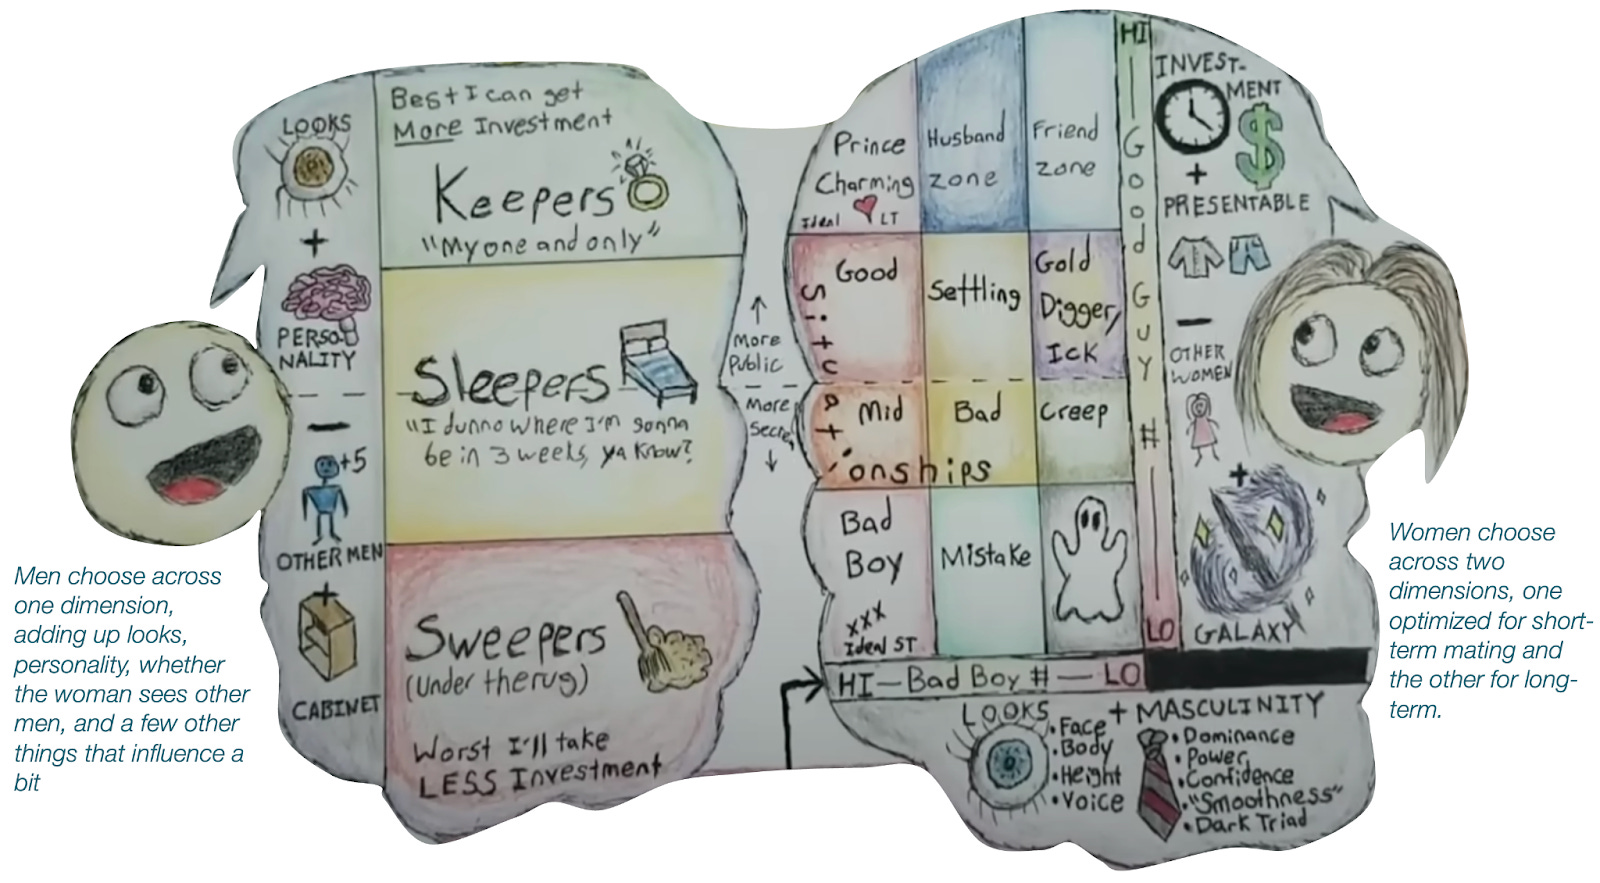 LOOKS
+
PERSO-
NALITY
—
+5
OTHER MEN
+
CABINET
Best I can get
More Investment
Keepers
"My one and only"
Sleepers
"I dunno where I'm gonna
be in 3 weeks, ya know?
Sweepers
(Under the rug)
Worst I'll take
LESS Investment
More
Public
More
Secre
Prince
Charming
Ideal LT
Husband
zone
Friend
zone
Good
Settling
Gold
Digger/
Ick
Mid
Bad
Creep
Situationships
Bad
Boy
xxx
Ideal ST
Mistake
HI — Good Guy # — LO
HI — Bad Boy # — LO
INVEST-
MENT
$
+
PRESENTABLE
—
OTHER
WOMEN
+
GALAXY
LOOKS
• Face
• Body
• Height
• Voice
+ MASCULINITY
• Dominance
• Power
• Confidence
• "Smoothness"
• Dark Triad
Men choose across
one dimension,
adding up looks,
personality, whether
the woman sees other
men, and a few other
things that influence a
bit
Women choose
across two
dimensions, one
optimized for short-
term mating and
the other for long-
term.